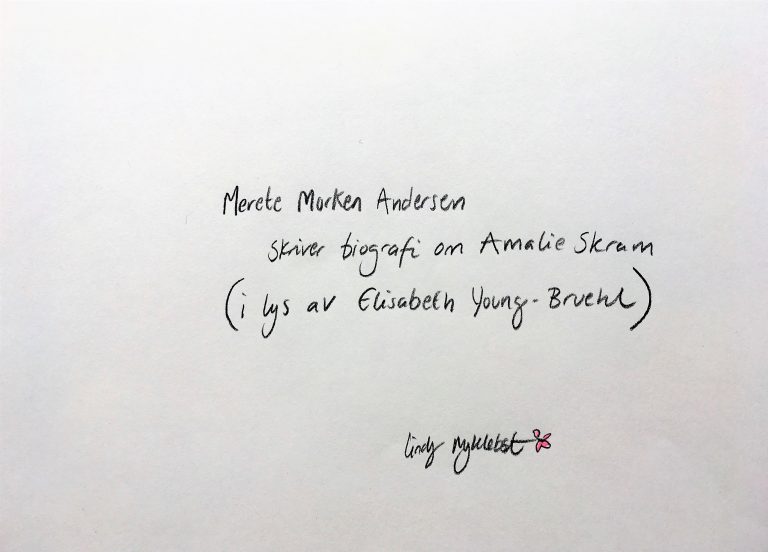 Merete Morken Andersen
skriver biografi om Amalie Skram
(i lys av Elisabeth Young-Bruehl)
Lindy Myklebst